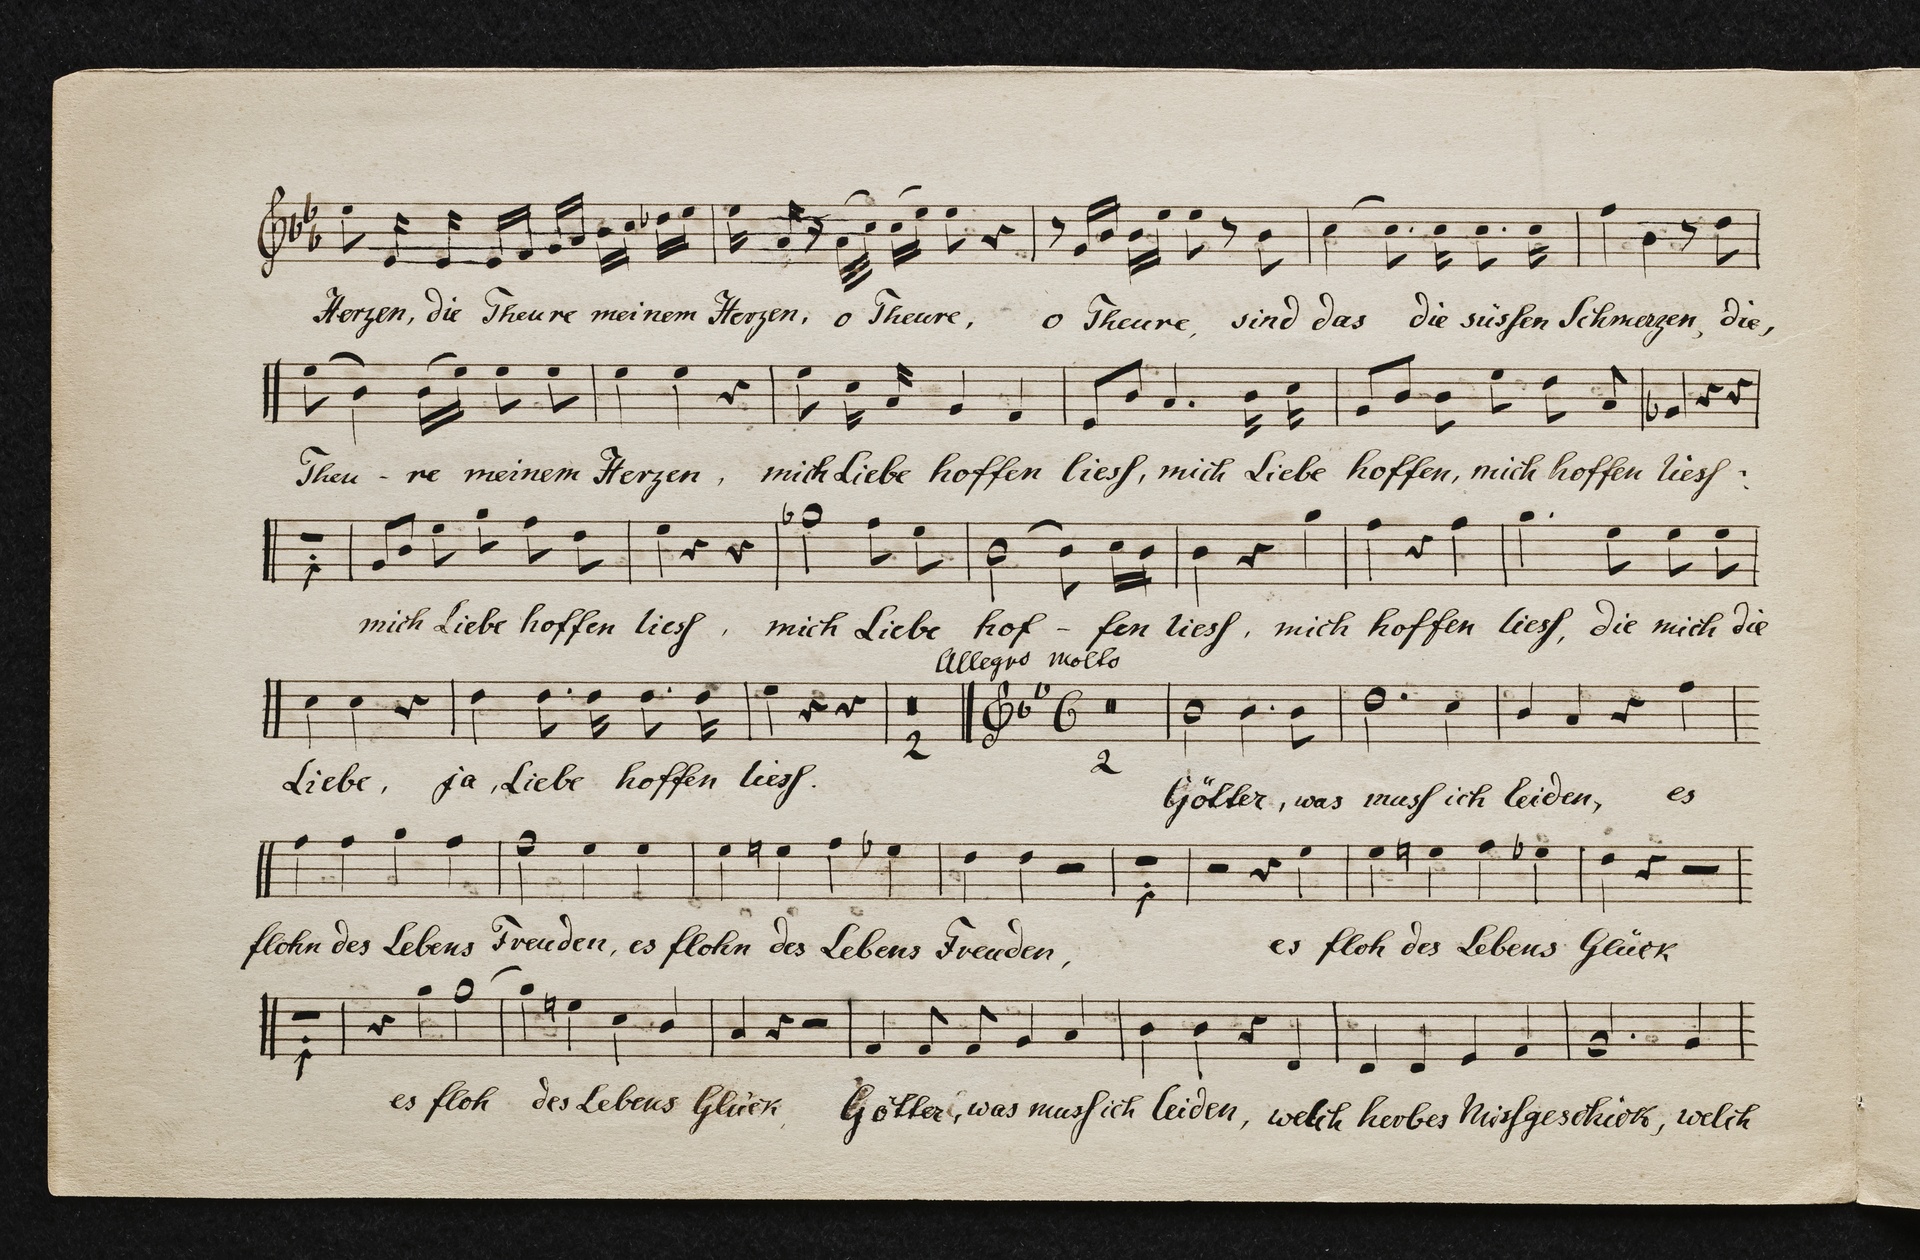 Herzen, die Theure meinem Herzen, o Theure, o Theure, sind das die süsſen Schmerzen, die,
Theu - re meinem Herzen, mich Liebe hoffen liesſ, mich Liebe hoffen, mich hoffen liesſ:
1
mich Liebe hoffen liesſ, mich Liebe hof - fen liesſ, mich hoffen liesſ, die mich die
Allegro molto
2 2
Liebe, ja, Liebe hoffen liesſ. Götter, was musſ ich leiden, es
1
flohn des Lebens Freuden, es flohn des Lebens Freuden, es floh des Lebens Glück
1
es floh des Lebens Glück, Götter, was musſ ich leiden, welch herbes Misſgeschick, welch